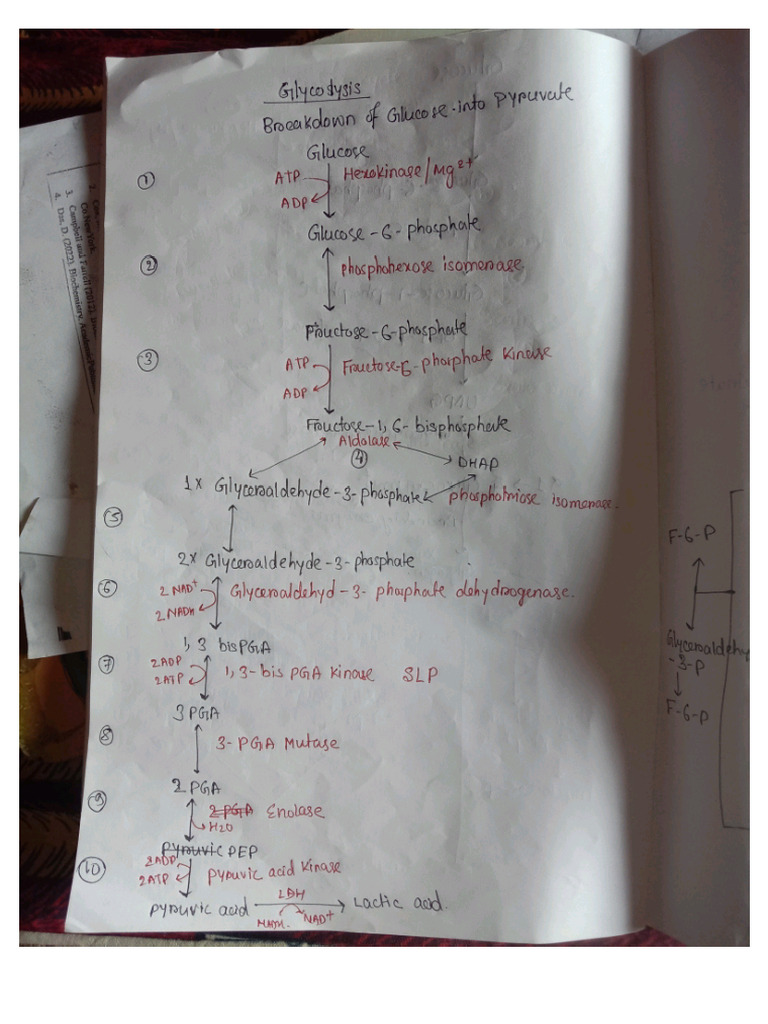 Glycodysis
Breakdown of Glucose into Pyruvate
Glucose
①
ATP
Hexokinase/Mg²⁺
ADP
Glucose-6-phosphate
②
phosphohexose isomerase
Fructose-6-phosphate
③
ATP
Fructose-6-phosphate Kinase
ADP
Fructose-1,6-bisphosphate
Aldolase
④
DHAP
1x Glyceraldehyde-3-phosphate
phosphotriose isomerase.
⑤
2x Glyceraldehyde-3-phosphate
⑥
2 NAD⁺
Glyceraldehyd-3-phosphate dehydrogenase.
2 NADH
1,3 bisPGA
⑦
2ADP
2ATP
1,3-bis PGA Kinase SLP
3 PGA
⑧
3-PGA Mutase
2 PGA
⑨
2 PGA Enolase
H2O
Pyruvic PEP
⑩
2ADP
2ATP
Pyruvic acid Kinase
Pyruvic acid
LDH
Lactic acid.
NADH.
NAD⁺
F-6-P
Glyceraldehy
-3-P
F-6-P
3. Campbell and Farrell (2012).
4. Das, D. (2022). Biochemistry. Academic